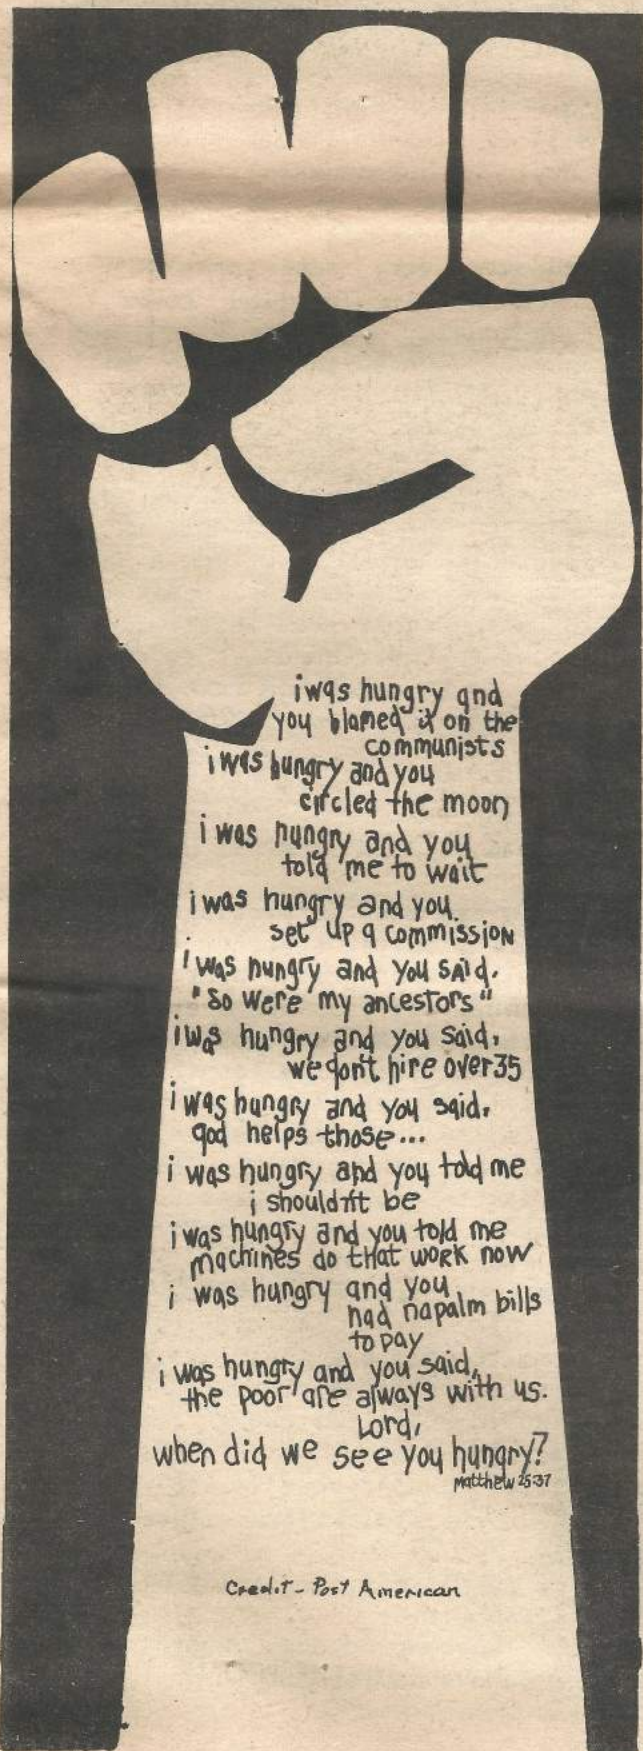 i was hungry and
you blamed it on the
communists
i was hungry and you
circled the moon
i was hungry and you
told me to wait
i was hungry and you
set up a commission
i was hungry and you said,
"so were my ancestors"
i was hungry and you said,
we don't hire over 35
i was hungry and you said,
god helps those...
i was hungry and you told me
i shouldn't be
i was hungry and you told me
machines do that work now
i was hungry and you
had napalm bills
to pay
i was hungry and you said,
the poor are always with us.
Lord,
when did we see you hungry?
Matthew 25:37
Credit - Post American